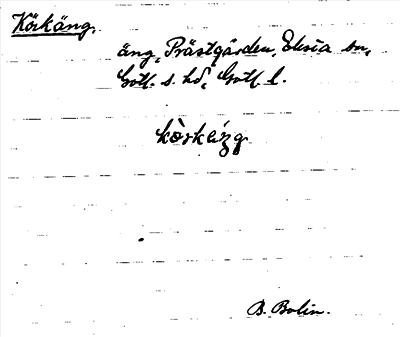 Körkäng.
äng, Prästgården, Etesia sn,
Gotl. s. hd, Gotl. l.
kòrkázg
B. Bolin.